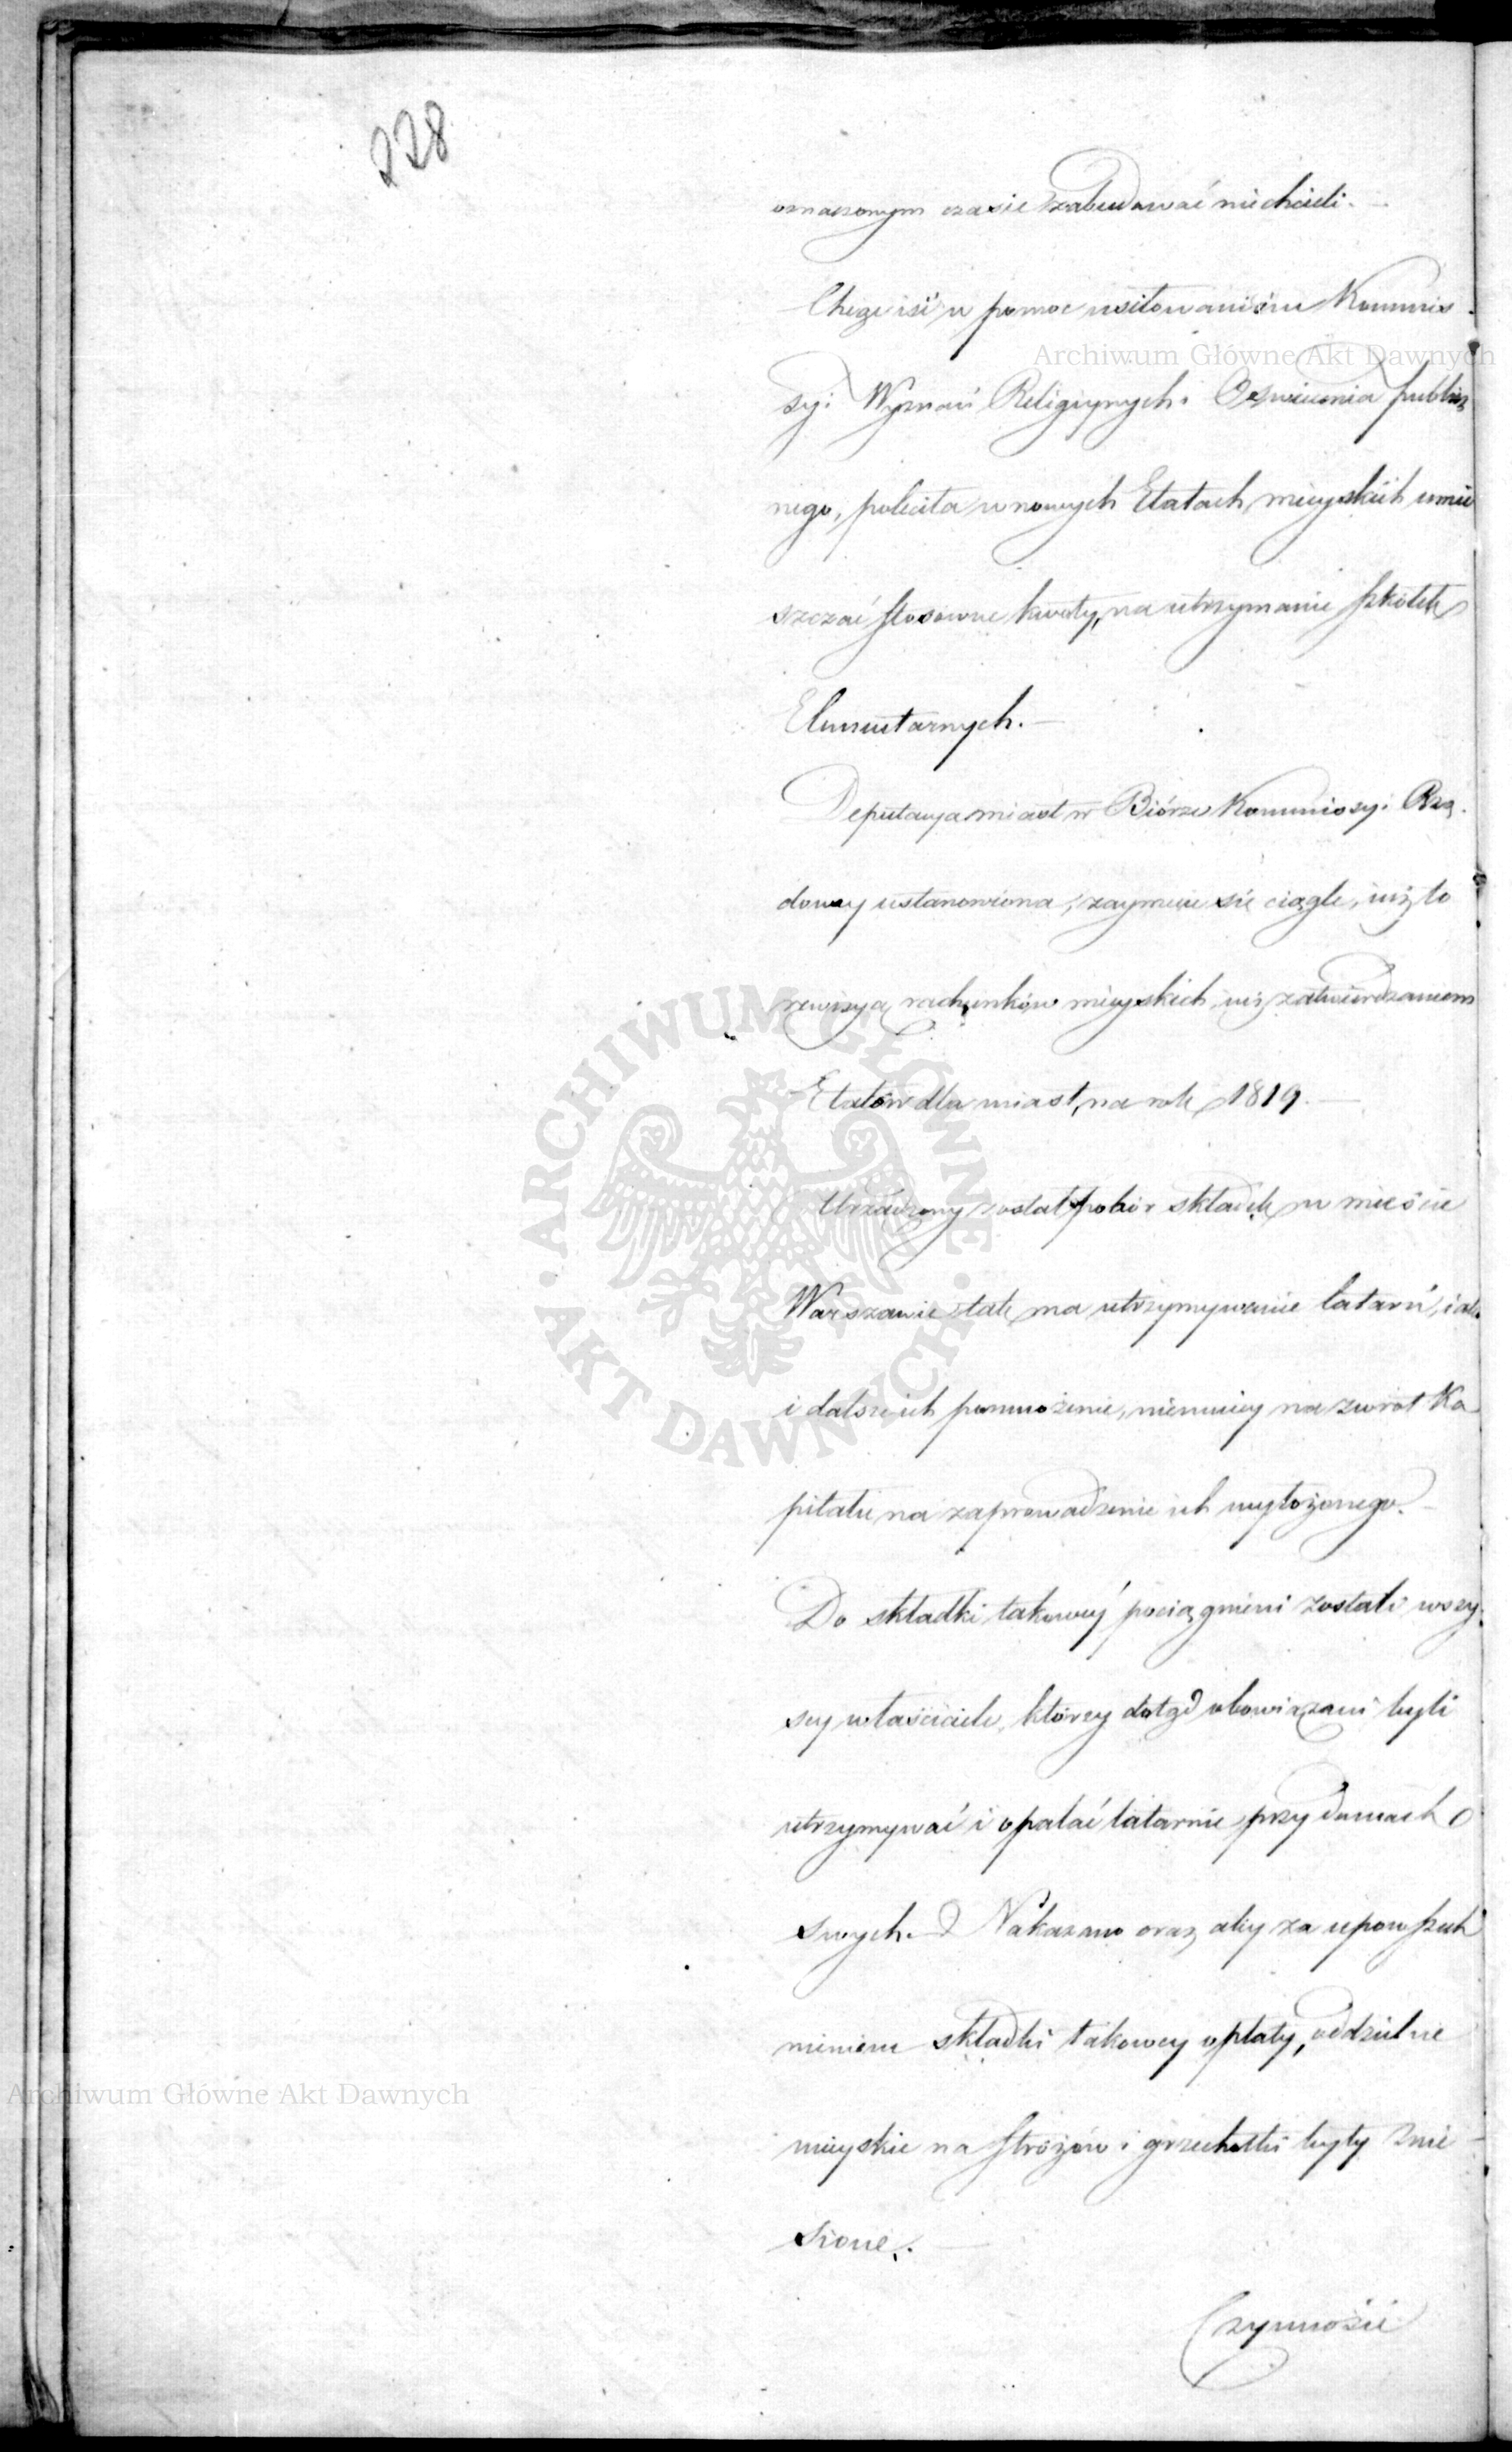 228
oznaczonym czasie zabudować niechcieli. —
Chcąc iść w pomoc usiłowaniom Kommis
syi Wyznań Religiynych i Oświecenia publicz
nego, poleciła w nowych Etatach mieyskich umie
szczać stosowne kwoty, na utrzymanie szkółek
Elementarnych. —
Deputacya miast w Biórze Kommissyi Rzą
dowey ustanowiona, zaymuie się ciągle, iuż to
rewizyą rachunków mieyskich, iuż zatwierdzaniem
Etatów dla miast, na rok 1819. —
Urządzony został pobór składek w mieście
Warszawie tak na utrzymywanie latarń, iak
i dalsze ich pomnożenie, niemniey na zwrot Ka
pitału na zaprowadzenie ich wyłożonego. —
Do składki takowey pociągnieni zostali wszy
scy właściciele, którzy dotąd obowiązani byli
utrzymywać i opalać latarnie przy domach
swych. — Nakazano oraz, aby za upowszech
nieniem składki takowey opłaty, oddzielnie
mieyskie na stróżów i grzechotki były znie
sione. —
Czynności
Archiwum Główne Akt Dawnych
Archiwum Główne Akt Dawnych
ARCHIWUM GŁÓWNE AKT DAWNYCH